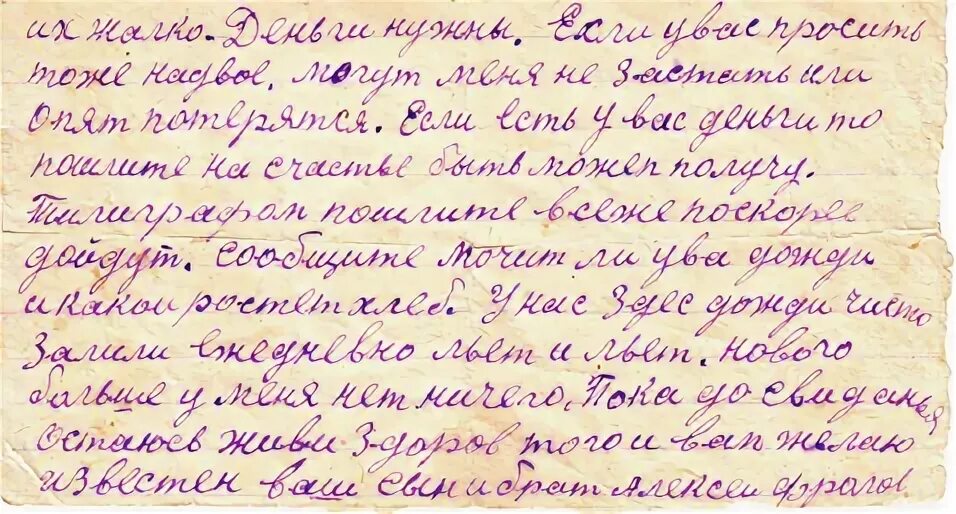 их жалко. Деньги нужны. Если у вас просить
тоже надвое, могут меня не застать или
Опят потерятся. Если есть у вас деньги то
пошлите на счастье быть можеп получу.
Тилиграфом пошлите всеже поскорее
дойдут. Сообщите мочит ли у ва дожди
и какои ростет хлеб. У нас здес дожди чисто
Залили ежедневно льет и льет. Нового
больше у меня нет ничего, Пока до свиданья
остаюсь живи здоров того и вам желаю
известен ваш сын и брат Алексеи Фролов